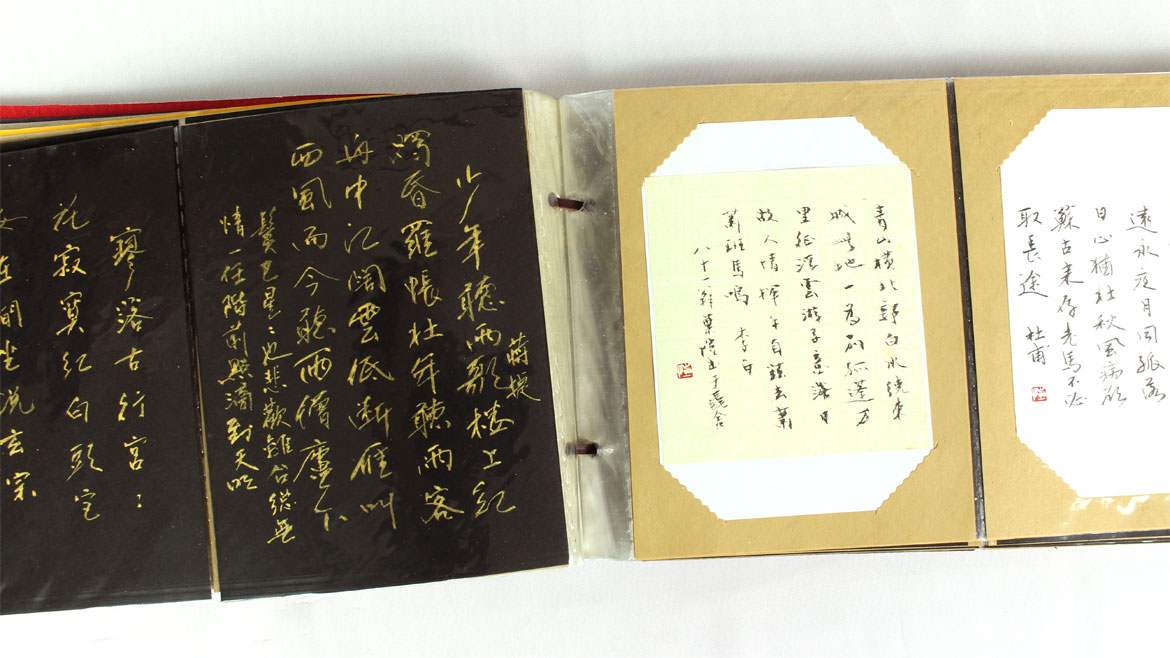 遠永夜月同孤落
日心猶壯秋風病欲
蘇古來存老馬不必
取長途 杜甫
青山橫北郭白水繞東
城此地一為別孤蓬万
里征浮雲游子意落日
故人情揮手自茲去蕭
蕭班馬鳴 李白
八十一
蔣捷
少年聽雨歌樓上紅
燭昏羅帳壯年聽雨客
舟中江闊雲低斷雁叫
西風而今聽雨僧廬下
鬢已星:也悲歡離合總無
情一任階前點滴到天明
寥落古行宮:
花寂寞紅白頭宮
女在閒坐說玄宗